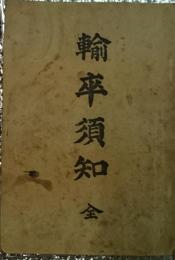 輸卒須知 全